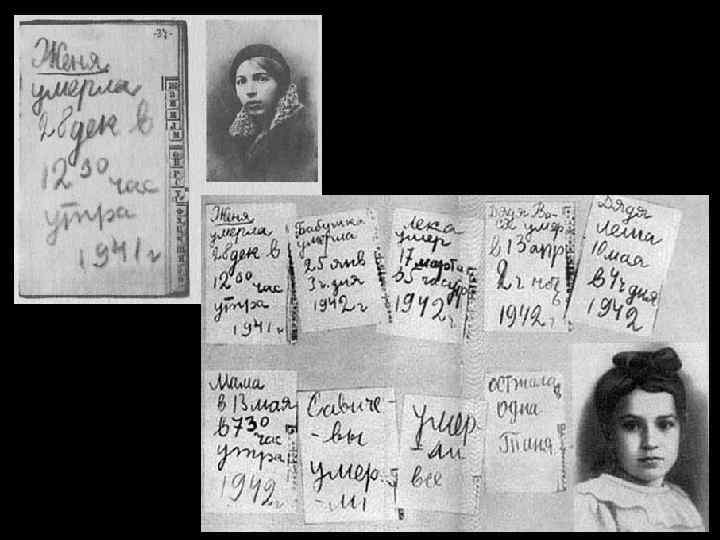 -34-
Женя
умерла
28 дек в
12 30 час
утра
1941 г
Женя
умерла
28 дек в
12 00 час
утра
1941 г
Бабушка
умерла
25 янв
3 ч. дня
1942 г
Лека
умер
17 марта
в 5 час утр
1942 г.
Дядя Ва-
ся умер
в 13 апр
2 ч ноч
в
1942 г
Дядя
Леша
10 мая
в 4 ч дня
1942
Мама
в 13 мая
в 7 30
час
утра
1942 г
Савиче-
-вы
умер-
-ли
умер
-ли
все
осталась
одна
Таня